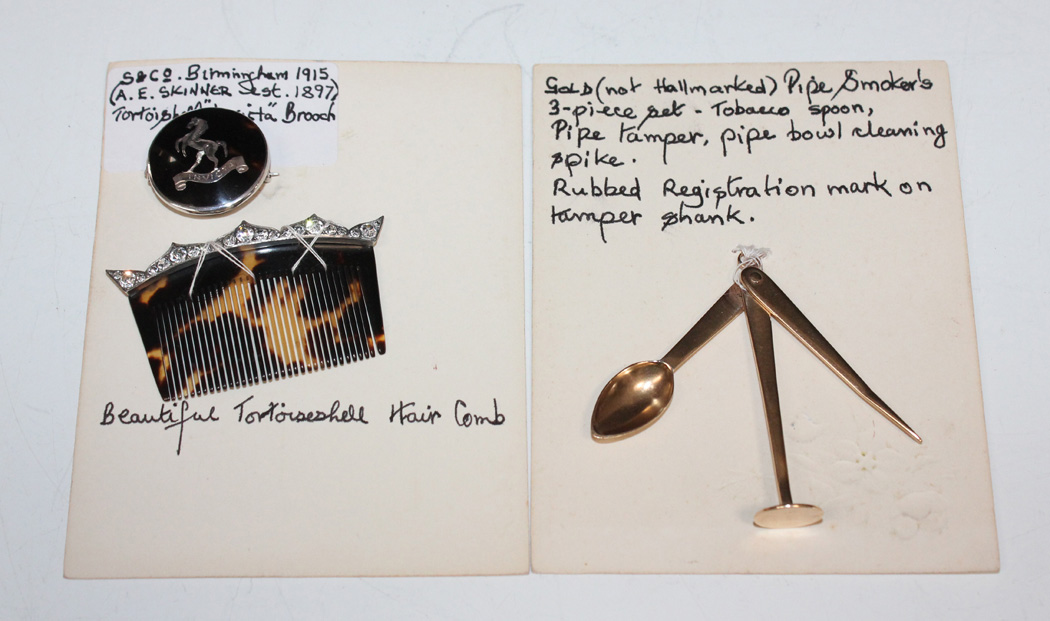 S&Co. Birmingham 1915
(A.E. SKINNER Est. 1897)
Brooch
INVICTA
Beautiful Tortoiseshell Hair Comb
GOLD (not Hallmarked) Pipe Smoker's
3-piece set - Tobacco spoon,
Pipe tamper, pipe bowl cleaning
spike.
Rubbed Registration mark on
tamper shank.